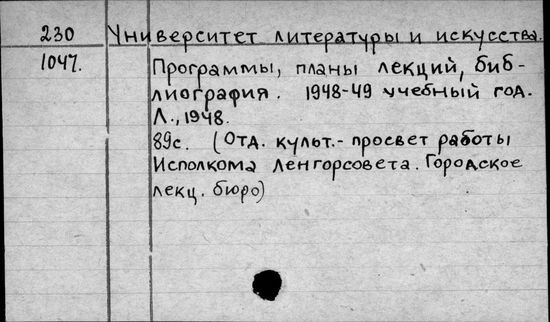 230 Университет литературы и искусства.
1047. Программы, планы лекций, биб-
лиография. 1948-49 учебный год.
Л., 1948.
89с. (Отд. культ.-просвет работы
Исполкома Ленгорсовета. Городское
лекц. бюро)